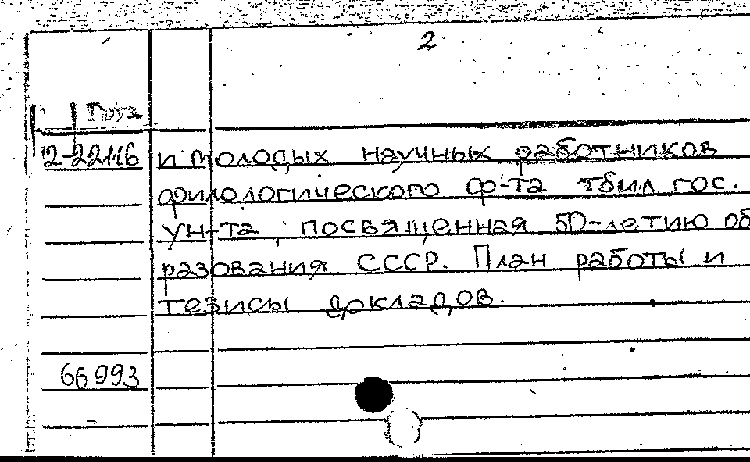 2
Груз
72-22116
и молодых научных работников
филологического ф-та Тбил. гос.
ун-та, посвященная 50-летию об
разования СССР. План работы и
тезисы докладов.
66993